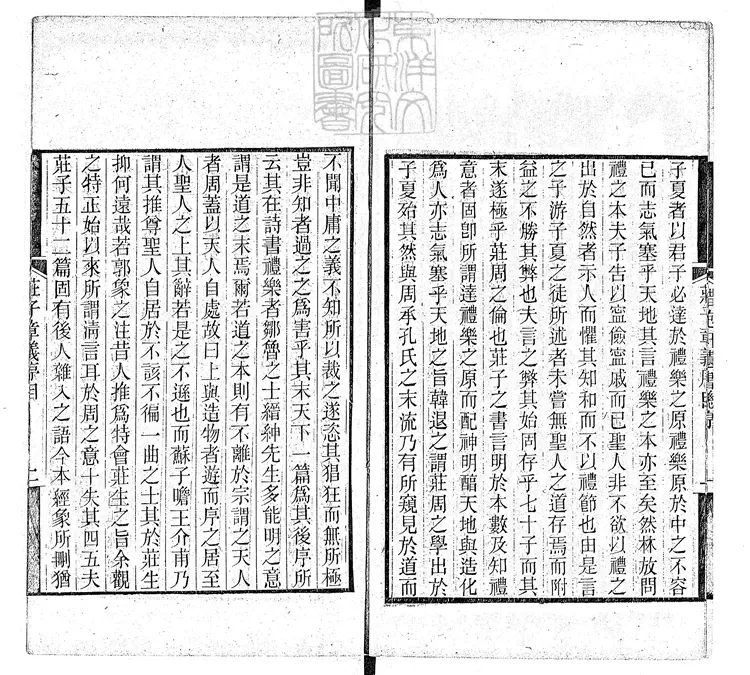 子夏者以君子必達於禮樂之原禮樂原於中之不容
已而志氣塞乎天地其言禮樂之本亦至矣然林放問
禮之本夫子告以寧儉寧戚而已聖人非不欲以禮之
出於自然者示人而懼其知和而不以禮節也由是言
之子游子夏之徒所述者未嘗無聖人之道存焉而附
益之不勝其弊也夫言之弊其始固存乎七十子而其
末遂極乎莊周之倫也莊子之書言明於本數及知禮
意者固卽所謂達禮樂之原而配神明醇天地與造化
爲人亦志氣塞乎天地之旨韓退之謂莊周之學出於
子夏殆其然與周承孔氏之末流乃有所窺見於道而
不聞中庸之義不知所以裁之遂恣其猖狂而無所極
豈非知者過之之爲害乎其末天下一篇爲其後序所
云其在詩書禮樂者鄒魯之士搢紳先生多能明之意
謂是道之末焉爾若道之本則有不離於宗謂之天人
者周蓋以天人自處故曰上與造物者遊而序之居至
人聖人之上其辭若是之不遜也而蘇子瞻王介甫乃
謂其推尊聖人自居於不該不徧一曲之士其於莊生
抑何遠哉若郭象之注昔人推爲特會莊生之旨余觀
之特正始以來所謂淸言耳於周之意十失其四五夫
莊子五十二篇固有後人雜入之語今本經象所刪猶
莊子章義序目
二
東洋文化研究所圖書